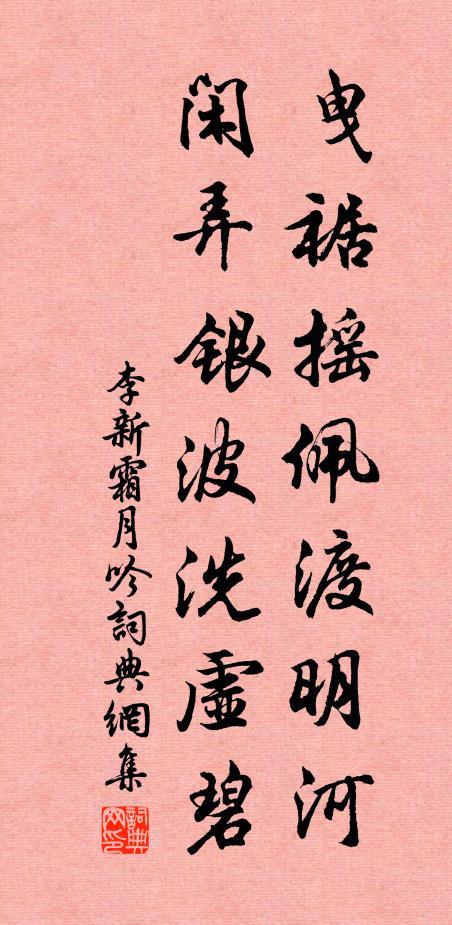 曳裾摇佩渡明河
閑弄银波洗虚碧
李新霜月吟詞典網集
詞典网印